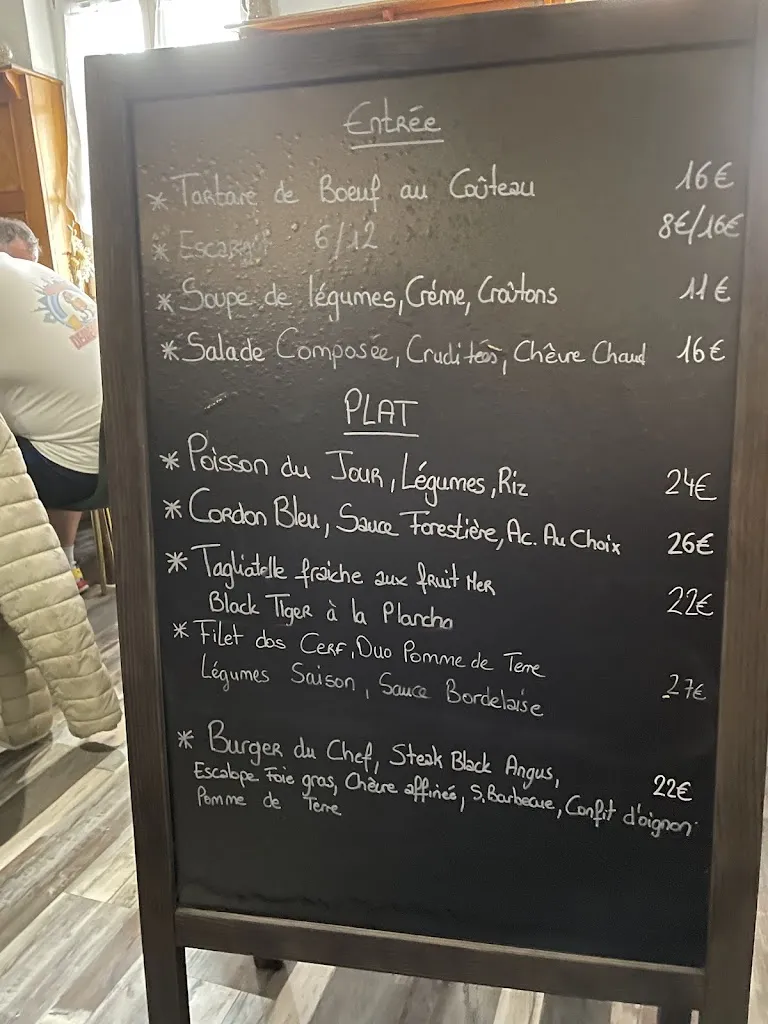 Entrée
* Tartare de Boeuf au Coûteau 16€
* Escargot 6/12 8€/16€
* Soupe de légumes, Créme, Croûtons 11€
* Salade Composée, Cruditées, Chêvre Chaud 16€
PLAT
* Poisson du Jour, Légumes, Riz 24€
* Cordon Bleu, Sauce Forestière, Ac. Au Choix 26€
* Tagliatelle fraiche aux fruit Mer
Black Tiger à la Plancha 22€
* Filet dos Cerf, Duo Pomme de Terre
Légumes Saison, Sauce Bordelaise 27€
* Burger du Chef, Steak Black Angus,
Escalope Foie gras, Chêvre affinée, S. Barbecue, Confit d'oignon 22€
Pomme de Terre